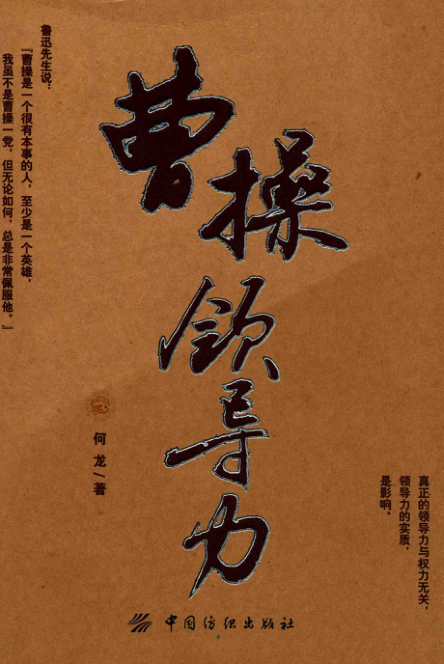 鲁迅先生说：
『曹操是一个很有本事的人，至少是一个英雄，
我虽不是曹操一党，但无论如何，总是非常佩服他。』
曹操
领导力
何龙/著
真正的领导力与权力无关，
领导力的实质，
是影响。
中国纺织出版社